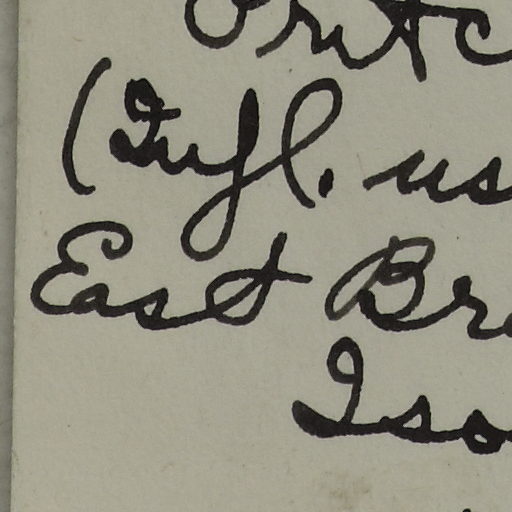 (Infl. us
East Br
Iso